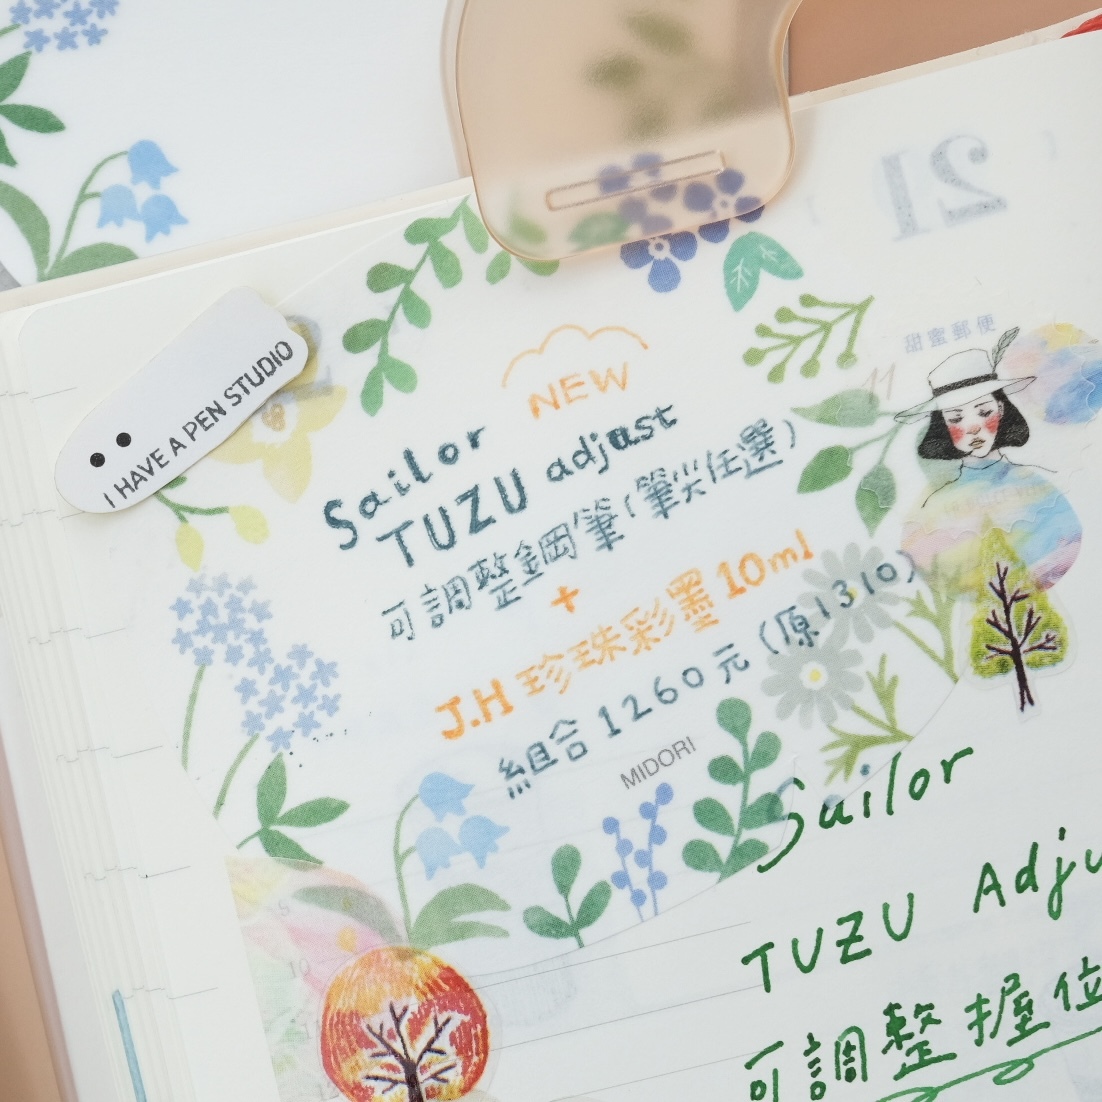 21
甜蜜郵便
11
I HAVE A PEN STUDIO
NEW
Sailor
TUZU adjast
可調整鋼筆(筆尖任選)
+
J.H 珍珠彩墨 10ml
組合 1260元 (原1310)
MIDORI
Sailor
TUZU Adju
可調整握位
10